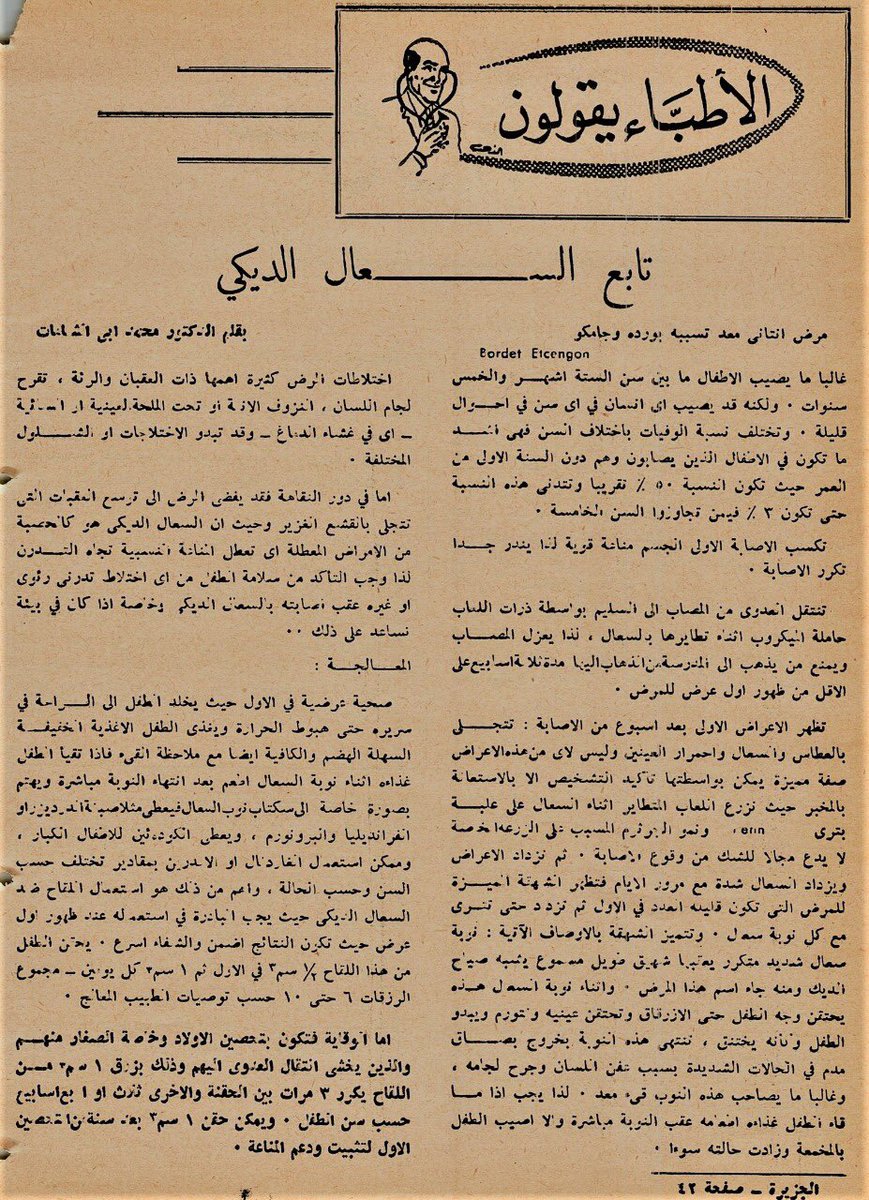 الأطباء يقولون
تابع السعال الديكي
بقلم الدكتور محمد ابي الشامات
مرض انتاني معد تسببه بورده وجامكو
Bordet Etcengon
غالبا ما يصيب الاطفال ما بين سن الستة اشهر والخمس
سنوات ٠ ولكنه قد يصيب اى انسان في اى سن في احوال
قليلة ٠ وتختلف نسبة الوفيات باختلاف السن فهي أشد
ما تكون في الاطفال الذين يصابون وهم دون السنة الاولى من
العمر حيث تكون النسبة ٥٠ ٪ تقريبا وتتدنى هذه النسبة
حتى تكون ٣ ٪ فيمن تجاوزوا السن الخامسة ٠
تكسب الاصابة الاولى الجسم مناعة قوية لذا يندر جدا
تكرر الاصابة ٠
تنتقل العدوى من المصاب الى السليم بواسطة ذرات اللعاب
حاملة الميكروب اثناء تطايرها بالسعال ، لذا يعزل المصاب
ويمنع من يذهب الى المدرسة من الذهاب اليها مدة ثلاثة اسابيع على
الاقل من ظهور اول عرض للمرض ٠
تظهر الاعراض الاولى بعد اسبوع من الاصابة : تتجلى
بالعطاس والسعال واحمرار العينين وليس لاى من هذه الاعراض
صفة مميزة يمكن بواسطتها تأكيد التشخيص الا بالاستعانة
بالمخبر حيث نزرع اللعاب المتطاير اثناء السعال على علبة
بترى ونمو الجرثوم المسبب على الزرعة الخاصة
لا يدع مجالا للشك من وقوع الاصابة ٠ ثم تزداد الاعراض
ويزداد السعال شدة مع مرور الايام فتظهر الشهقة المميزة
للمرض التي تكون قليلة العدد في الاول ثم تزداد حتى تترى
مع كل نوبة سعال ٠ وتتميز الشهقة بالاوصاف الآتية : نوبة
سعال شديد متكرر يعقبها شهيق طويل مسموع يشبه صياح
الديك ومنه جاء اسم هذا المرض ٠ واثناء نوبة السعال هذه
يحتقن وجه الطفل حتى الازرقاق وتحتقن عينيه وتتورم ويبدو
الطفل وكأنه يختنق ، تنتهي هذه النوبة بخروج بصاق
مدم في الحالات الشديدة بسبب عفن اللسان وجرح لجامه ،
وغالبا ما يصاحب هذه النوب قيء معد ٠ لذا يجب اذا ما
قاء الطفل غذاءه اطعامه عقب النوبة مباشرة والا اصيب الطفل
بالمخمصة وزادت حالته سوءا ٠
اختلاطات المرض كثيرة اهمها ذات القصبات والرئة ، تقرح
لجام اللسان ، النزوف الانفية أو تحت الملتحمة العينية او السحائية
ـ اى في غشاء الدماغ ـ وقد تبدو الاختلاجات او الشلول
المختلفة ٠
اما في دور النقاهة فقد يفضى المرض الى توسع القصبات التي
تتجلى بالتقشع الغزير وحيث ان السعال الديكي هو كالحصبة
من الامراض المعطلة اى تعطل المناعة النسبية تجاه التدرن
لذا وجب التأكد من سلامة الطفل من اى اختلاط تدرني رئوى
او غيره عقب اصابته بالسعال الديكي وخاصة اذا كان في بيئة
تساعد على ذلك ٠٠
المعالجة :
صحية عرضية في الاول حيث يخلد الطفل الى الراحة في
سريره حتى هبوط الحرارة ويغذى الطفل الاغذية الخفيفة
السهلة الهضم والكافية ايضا مع ملاحظة القيء فاذا تقيأ الطفل
غذاءه اثناء نوبة السعال اطعم بعد انتهاء النوبة مباشرة ويهتم
بصورة خاصة الى مسكنات نوب السعال فيعطى مثلا صبغة الدريزر او
الغرانديليا والبرونورم ، ويعطى الكودئين للاطفال الكبار ،
وممكن استعمال الغاردنال او الاتدرين بمقادير تختلف حسب
السن وحسب الحالة ، واهم من ذلك هو استعمال اللقاح ضد
السعال الديكي حيث يجب المبادرة في استعماله عند ظهور اول
عرض حيث تكون النتائج اضمن والشفاء اسرع ٠ يحقن الطفل
من هذا اللقاح ١/٢ سم٣ في الاول ثم ١ سم٣ كل يومين ـ مجموع
الزرقات ٦ حتى ١٠ حسب توصيات الطبيب المعالج ٠
اما الوقاية فتكون بتحصين الاولاد وخاصة الصغار منهم
والذين يخشى انتقال العدوى اليهم وذلك بزرق ١ سم٣ من
اللقاح يكرر ٣ مرات بين الحقنة والاخرى ثلاث او اربع اسابيع
حسب سن الطفل ٠ ويمكن حقن ١ سم٣ بعد سنة من التحصين
الاول لتثبيت ودعم المناعة ٠
الجزيرة ـ صفحة ٤٢